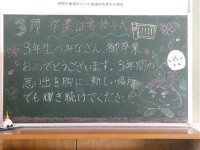 3月 卒業証書授与式
3年生のみなさん、御卒業
おめでとうございます。3年間の
思い出を胸に、新しい場所
でも輝き続けてください